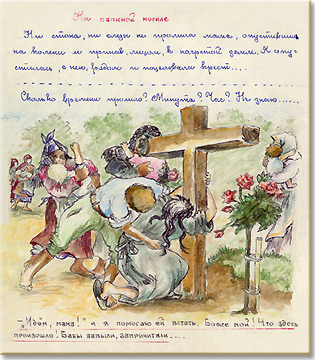 На папиной могиле
Ни стона, ни слезы не пролила мама, опустившись
на колени и припав лицом, к нагретой земле. Я опу-
стилась, с нею, рядом и поцеловала крест....
Сколько времени прошло? Минута? Час? Не знаю......
–"Идём, мама!" и я помогаю ей встать. Боже мой! Что здесь
произошло! Бабы запыли, запричитали....